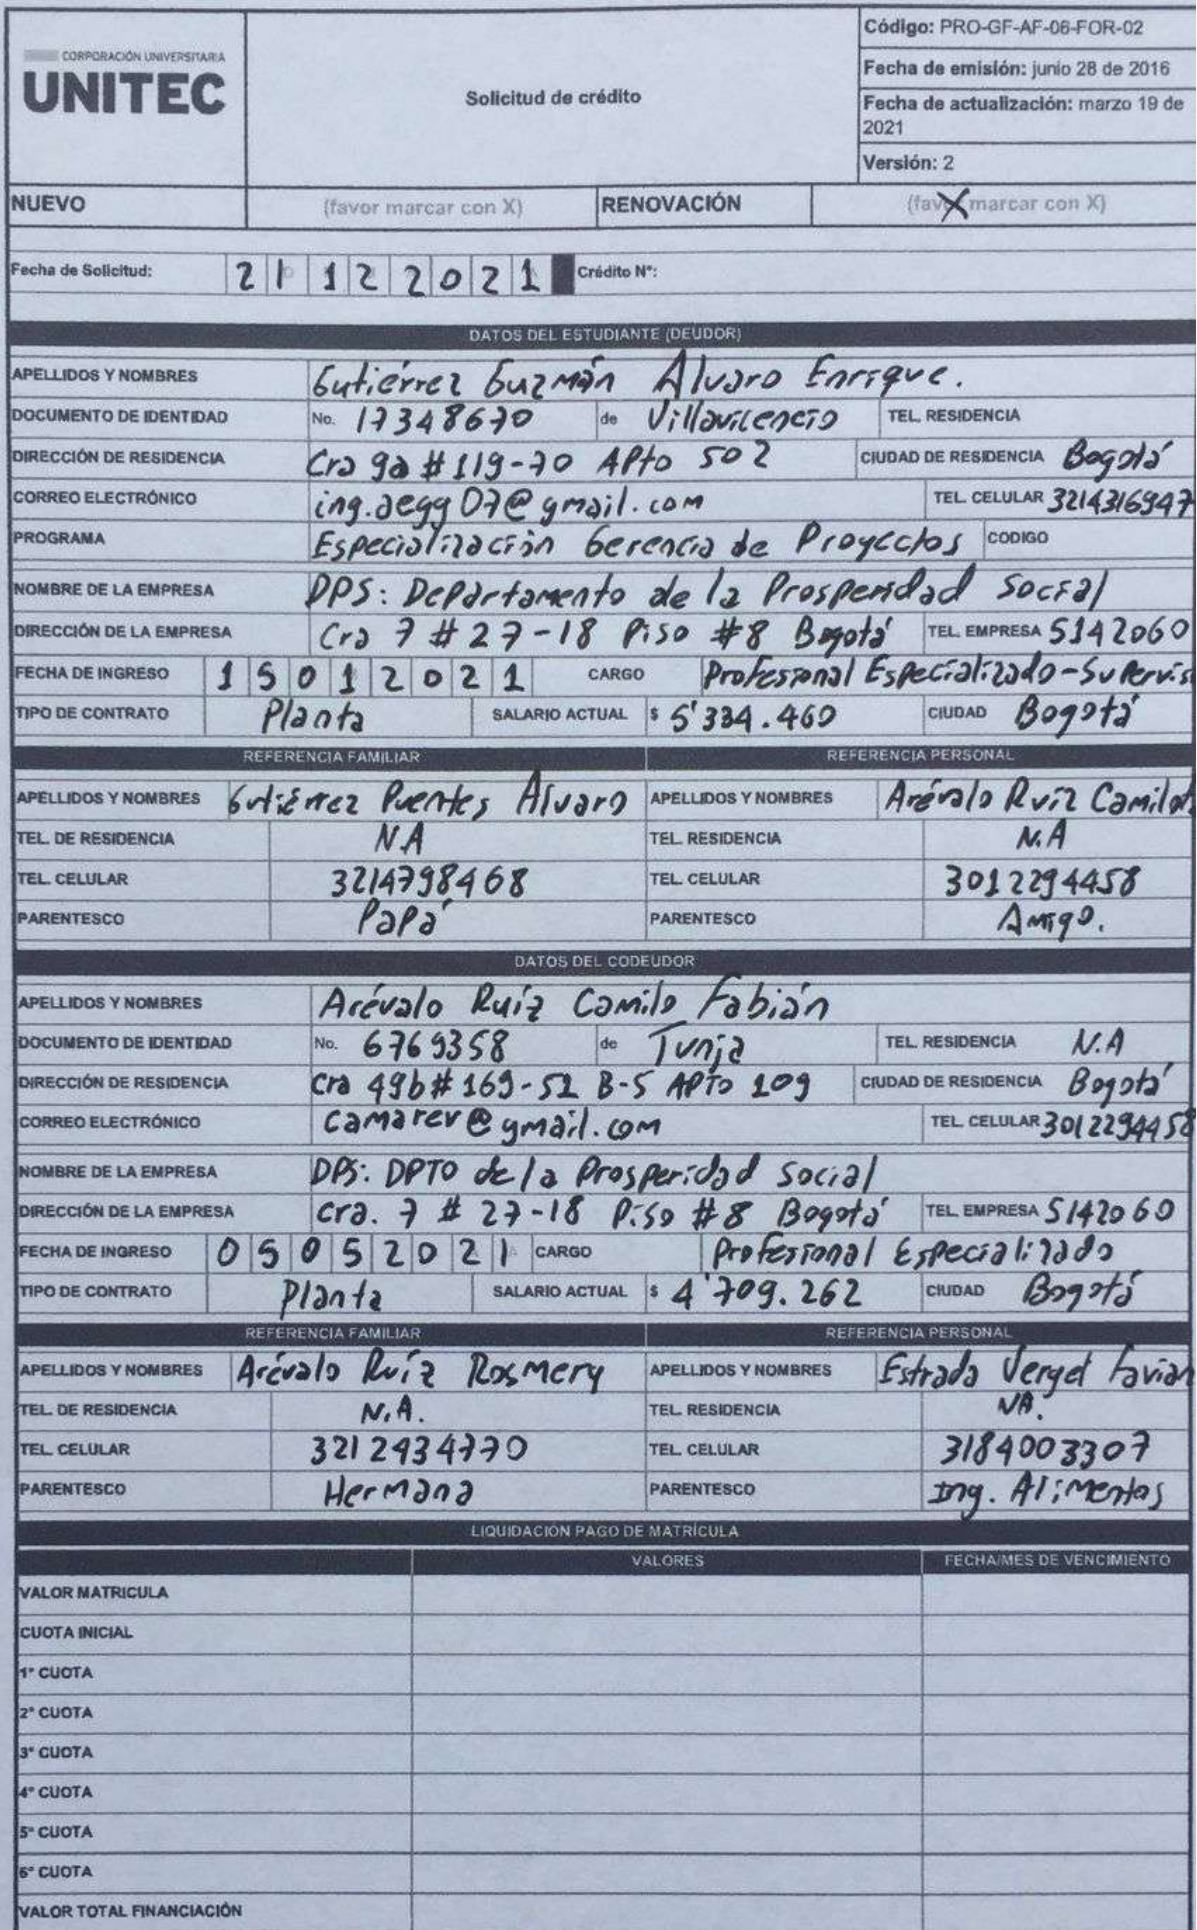 CORPORACIÓN UNIVERSITARIA
UNITEC
Solicitud de crédito
Código: PRO-GF-AF-06-FOR-02
Fecha de emisión: junio 28 de 2016
Fecha de actualización: marzo 19 de
2021
Versión: 2
NUEVO (favor marcar con X) RENOVACIÓN (favor marcar con X) X
Fecha de Solicitud: 21 12 2021 Crédito N°:
DATOS DEL ESTUDIANTE (DEUDOR)
APELLIDOS Y NOMBRES Gutiérrez Guzmán Alvaro Enrique.
DOCUMENTO DE IDENTIDAD No. 17348670 de Villavicencio TEL. RESIDENCIA
DIRECCIÓN DE RESIDENCIA Cra 9a # 119-70 APto 502 CIUDAD DE RESIDENCIA Bogotá
CORREO ELECTRÓNICO ing.aegg07@gmail.com TEL. CELULAR 3214316947
PROGRAMA Especialización Gerencia de Proyectos CODIGO
NOMBRE DE LA EMPRESA DPS: Departamento de la Prosperidad Social
DIRECCIÓN DE LA EMPRESA Cra 7 # 27-18 Piso #8 Bogotá TEL. EMPRESA 5142060
FECHA DE INGRESO 15012021 CARGO Profesional Especializado-Supervis
TIPO DE CONTRATO Planta SALARIO ACTUAL $ 5'334.460 CIUDAD Bogotá
REFERENCIA FAMILIAR REFERENCIA PERSONAL
APELLIDOS Y NOMBRES Gutiérrez Puentes Alvaro APELLIDOS Y NOMBRES Arévalo Ruíz Camilo
TEL. DE RESIDENCIA N.A TEL. RESIDENCIA N.A
TEL. CELULAR 3214798468 TEL. CELULAR 3012294458
PARENTESCO Papá PARENTESCO Amigo.
DATOS DEL CODEUDOR
APELLIDOS Y NOMBRES Arévalo Ruíz Camilo Fabián
DOCUMENTO DE IDENTIDAD No. 6769358 de Tunja TEL. RESIDENCIA N.A
DIRECCIÓN DE RESIDENCIA Cra 49b# 169-51 B-5 APTo 109 CIUDAD DE RESIDENCIA Bogotá
CORREO ELECTRÓNICO camarev@gmail.com TEL. CELULAR 3012294458
NOMBRE DE LA EMPRESA DPS: DPTO de la Prosperidad Social
DIRECCIÓN DE LA EMPRESA cra. 7 # 27-18 Piso #8 Bogotá TEL. EMPRESA 5142060
FECHA DE INGRESO 05052021 CARGO Profesional Especializado
TIPO DE CONTRATO Planta SALARIO ACTUAL $ 4'709.262 CIUDAD Bogotá
REFERENCIA FAMILIAR REFERENCIA PERSONAL
APELLIDOS Y NOMBRES Arévalo Ruíz Rosmery APELLIDOS Y NOMBRES Estrada Vergel Favian
TEL. DE RESIDENCIA N.A. TEL. RESIDENCIA NA.
TEL. CELULAR 3212934770 TEL. CELULAR 3184003307
PARENTESCO Hermana PARENTESCO Ing. Alimentos
LIQUIDACIÓN PAGO DE MATRÍCULA
VALORES FECHA/MES DE VENCIMIENTO
VALOR MATRICULA
CUOTA INICIAL
1° CUOTA
2° CUOTA
3° CUOTA
4° CUOTA
5° CUOTA
6° CUOTA
VALOR TOTAL FINANCIACIÓN